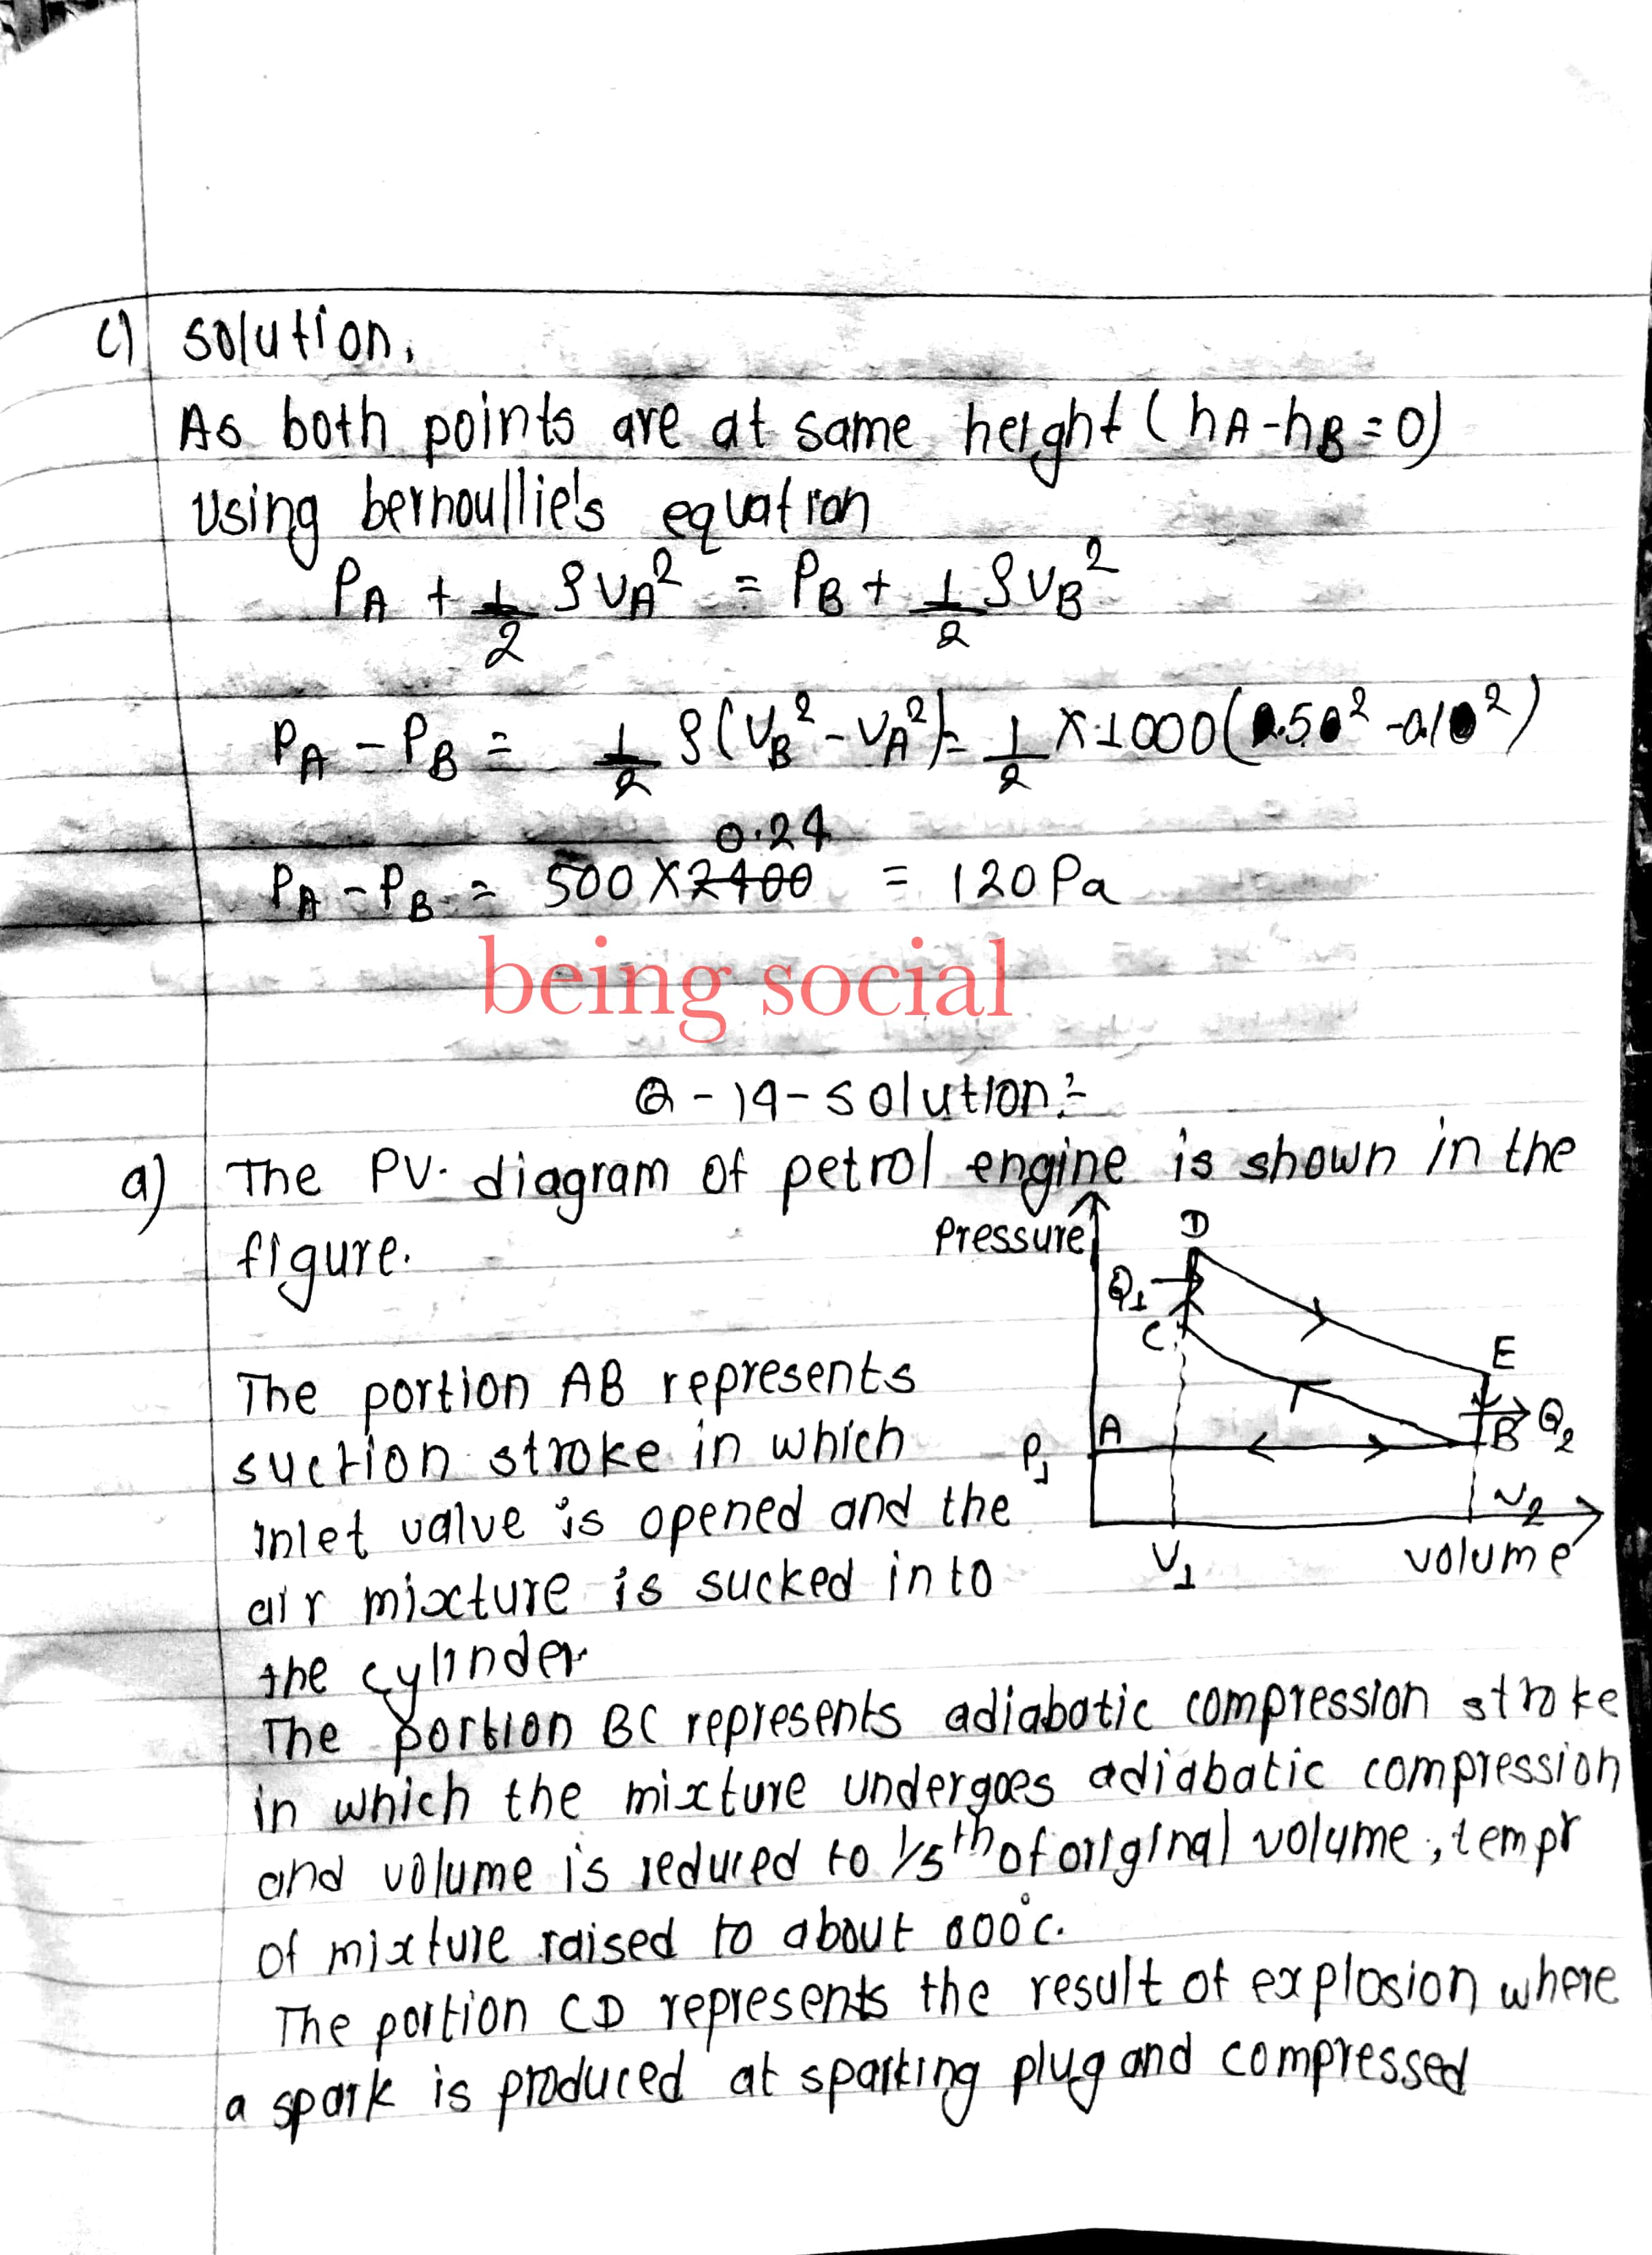 c) solution.
As both points are at same height (hA-hB=0)
Using bernoullie's equation
PA + 1/2 ρVA² = PB + 1/2 ρVB²
PA - PB = 1/2 ρ(VB² - VA²) = 1/2 × 1000(0.50² - 0.10²)
0.24
PA - PB = 500 × 2400 = 120 Pa
being social
Q - 14 - solution :-
a) The PV. diagram of petrol engine is shown in the
figure.
Pressure
D
Q1
C
E
Q2
A
B
P1
V2
V1
volume
The portion AB represents
suction stroke in which
inlet valve is opened and the
air mixture is sucked into
the cylinder.
The portion BC represents adiabatic compression stroke
in which the mixture undergoes adiabatic compression
and volume is reduced to 1/5th of original volume, tempr
of mixture raised to about 600°c.
The portion CD represents the result of explosion where
a spark is produced at sparking plug and compressed